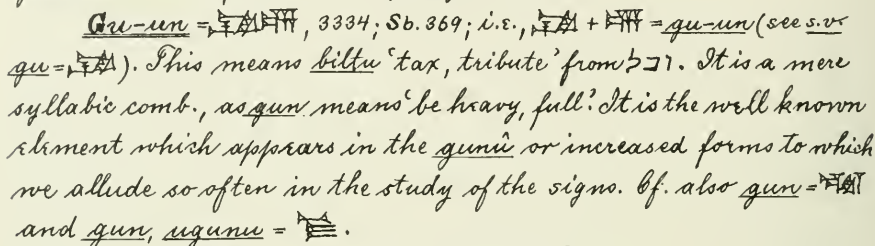 Gu-un = 𒄘𒌦, 3334; Sb. 369; i.e., 𒄘 + 𒌦 = gu-un (see s.v.
gu = 𒄘). This means biltu ‘tax, tribute’ from ובל. It is a mere
syllabic comb., as gun means ‘be heavy, full.’ It is the well known
element which appears in the gunû or increased forms to which
we allude so often in the study of the signs. Cf. also gun =
and gun, ugunu = .